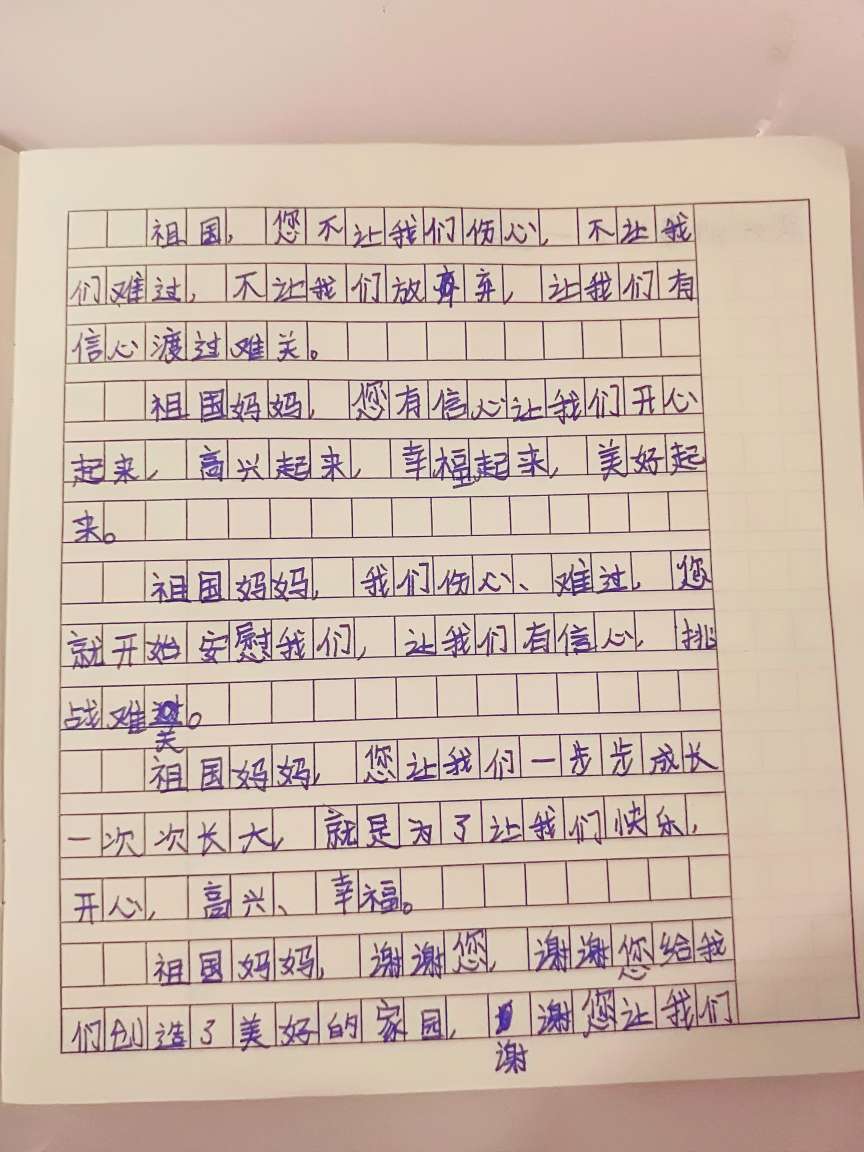 祖国，您不让我们伤心，不让我
们难过，不让我们放弃，让我们有
信心渡过难关。
祖国妈妈，您有信心让我们开心
起来，高兴起来，幸福起来，美好起
来。
祖国妈妈，我们伤心、难过，您
就开始安慰我们，让我们有信心，挑
战难关。
祖国妈妈，您让我们一步步成长
一次次长大，就是为了让我们快乐，
开心，高兴、幸福。
祖国妈妈，谢谢您，谢谢您给我
们创造了美好的家园，谢谢您让我们